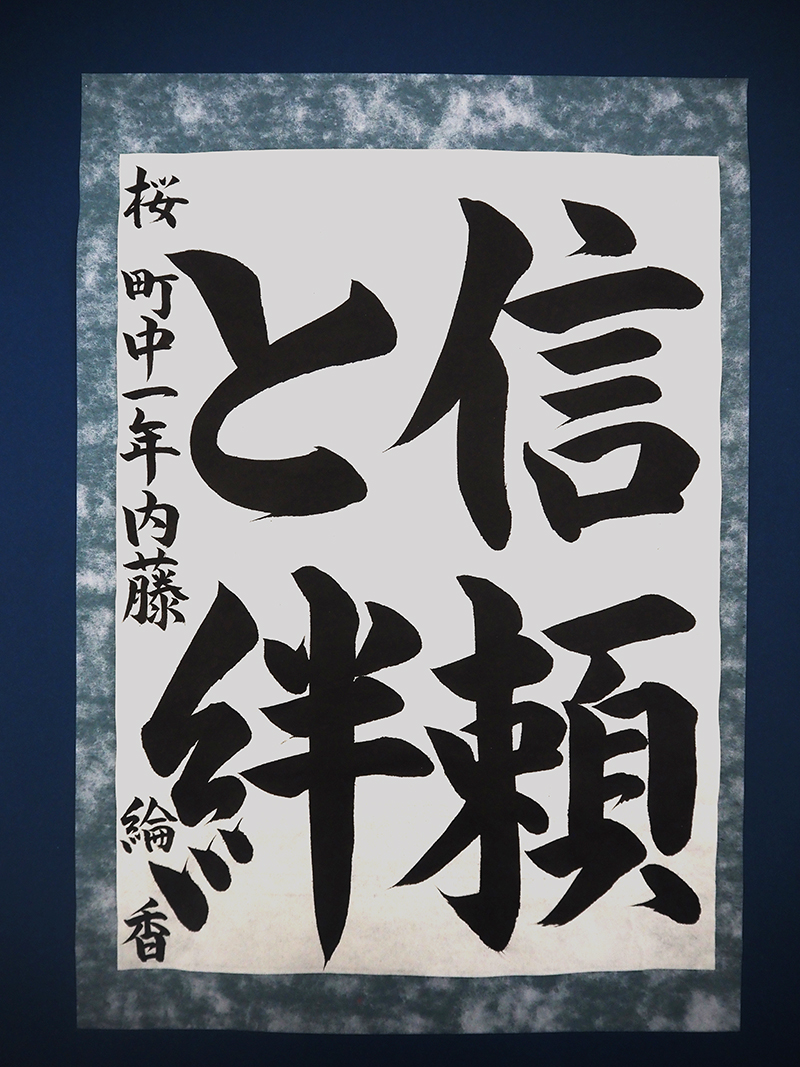 信頼
と絆
桜町中一年内藤綸香